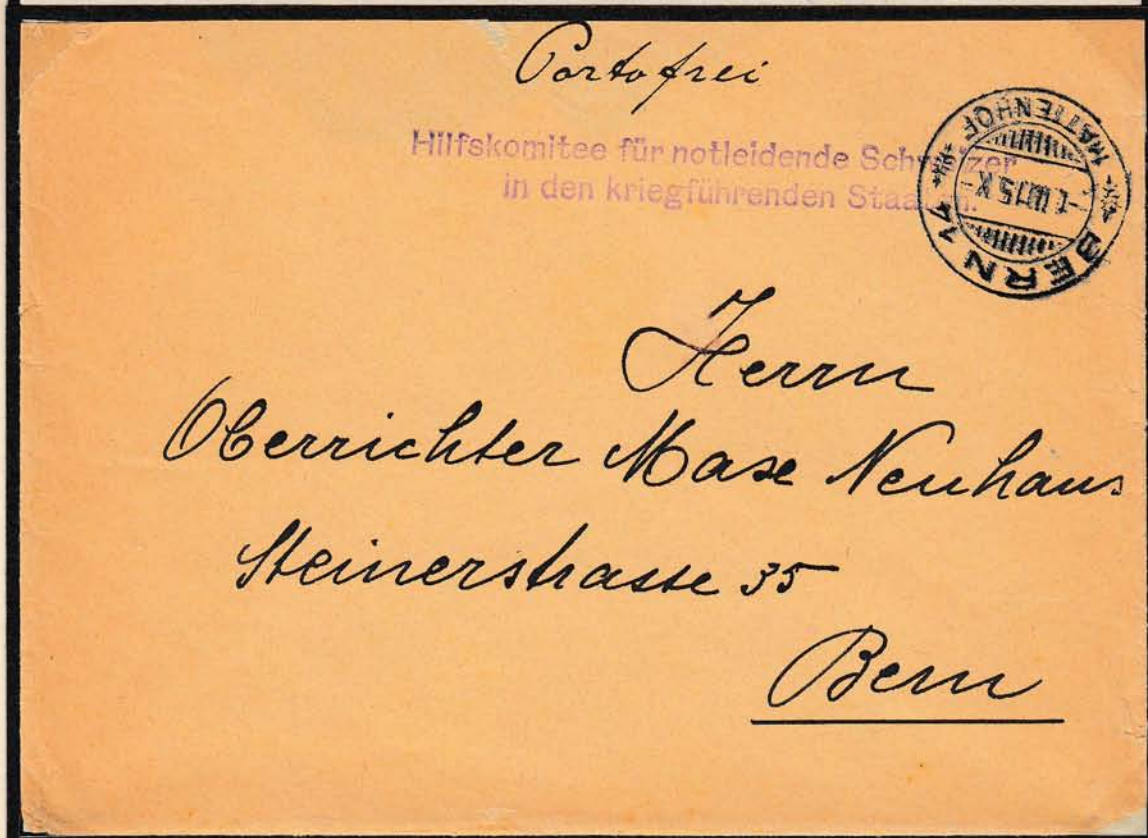 Portofrei
Hilfskomitee für notleidende Schweizer
in den kriegführenden Staaten.
BERN 14
MATTENHOF
Herrn
Oberrichter Maxe Neuhaus
Steinerstrasse 35
Bern